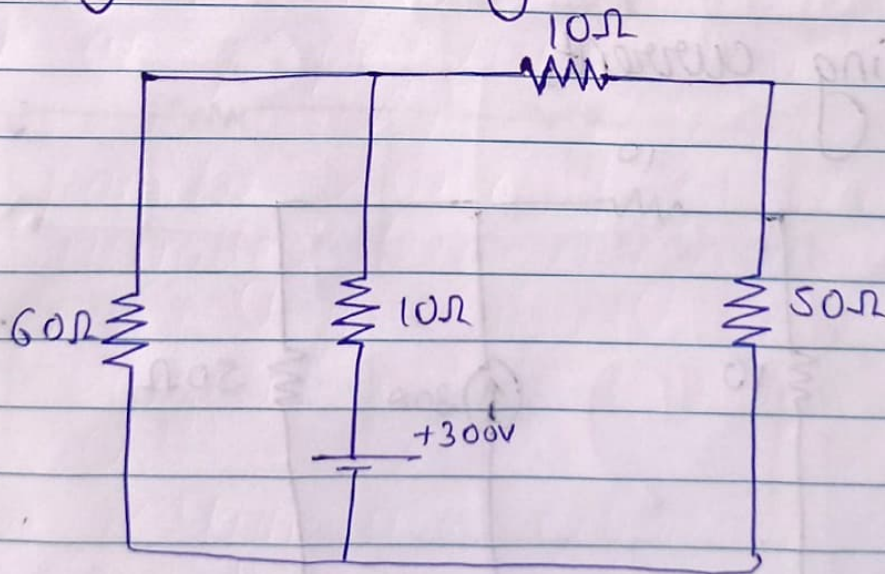 10Ω
60Ω
10Ω
50Ω
+300V